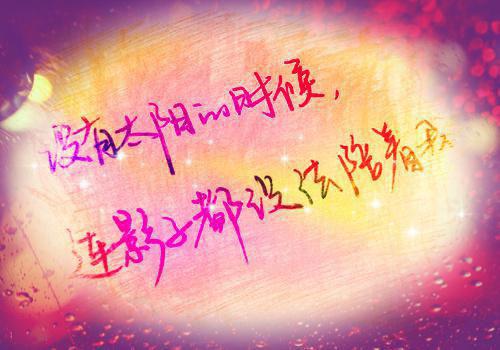 没有太阳的时候，
连影子都没法陪着我